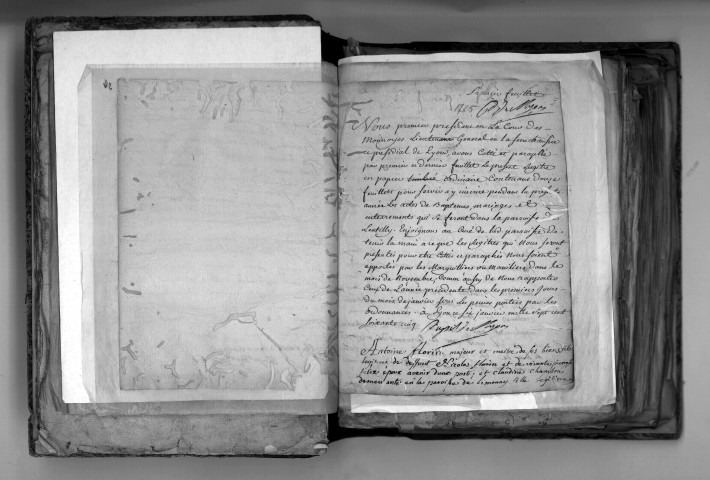 premier feuillet
1765
Nous premier president en La Cour des
Monnoyes Lieutenant General en la Senechaussée
et presidial de Lyon, avons Cotté et paraphé
par premier et dernier feuillet Le present Registre
en papier timbré ordinaire Contenant douze
feuillets pour servir a y inscrire pendant la presente
année Les actes de Baptemes, mariages et
enterrements qui se feront dans la paroisse de
Lentilly. Enjoignons au Curé de lad. paroisse de
tenir la main a ce que les Registres qui Nous seront
presentés pour etre Cottés et paraphés Nous soient
apportés par les Marguilliers ou Manilliers dans le
mois de Novembre, Comm' aussy de Nous rapporter
Ceux de L'année precedente dans les premiers Jours
du mois de janvier sous Les peines portées par Les
ordonnances. a Lyon ce six janvier mille sept cent
soixante cinq
Antoine florin, majeur et maitre de ses biens, fils
legitime de deffunt Nicolas florin et de
d'une part; et claudine chambe
demeurante en la paroisse de Limonay fille legitime